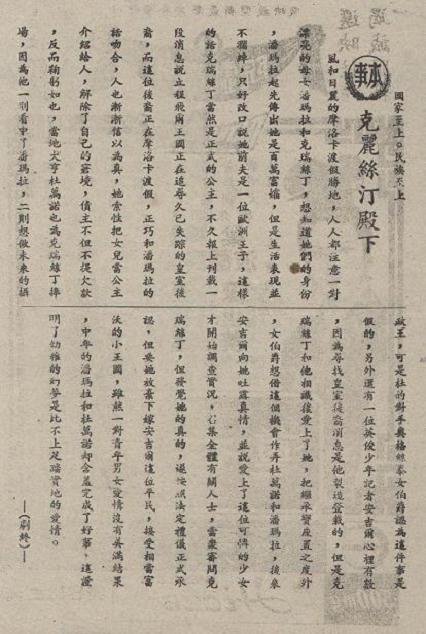 國家至上。民族至上
本事
克麗絲汀殿下
風和日麗的摩洛卡渡假勝地,人人都注意一對
漂亮的母女潘瑪拉和克瑞絲丁,想知道她們的身份
,潘瑪拉起先傳出她是百萬富孀,但是生活表現並
不獨綽,只好改口說她前夫是一位歐洲王子,這樣
的話克瑞絲丁當然是正式的公主,不久報上刊載一
段消息說立程飛爾王國正在追尋久已失踪的皇室後
裔,而這位後裔正在摩洛卡渡假,正巧和潘瑪拉的
話吻合,人也漸漸信以為真,她索性把女兒當公主
介紹給人,解除了自己的窘境,債主不但不提欠款
,反而鞠躬如也,當地大亨杜萬諾也為克瑞絲丁捧
場,因為他一則看中了潘瑪拉,二則想做未來的攝
政王,可是杜的對手奧格絲泰女伯爵認為這件事是
假的,另外還有一位英俊少年記者安吉爾心裡有數
,因為尋找皇室後裔消息是他製造登載的,但是克
瑞絲丁和他相識後愛上了她,把繼承寶座置之度外
,女伯爵想借這個機會作弄杜萬諾和潘瑪拉,後來
安吉爾向她吐露真情,並說愛上了這位可憐的少女
才開始調查實況,召集全體有關人士,當眾審問克
瑞絲丁,但發覺她的真的,遂按照法定禮儀正式承
認,但要她放棄下嫁安吉爾這位平民,接受相當富
沃的小王國,雖然一對青年男女愛情沒有美滿結果
,中年的潘瑪拉和杜萬諾却含羞完成了好事,這證
明了幼稚的幻夢是比不上足踏實地的愛情。
—(劇終)—